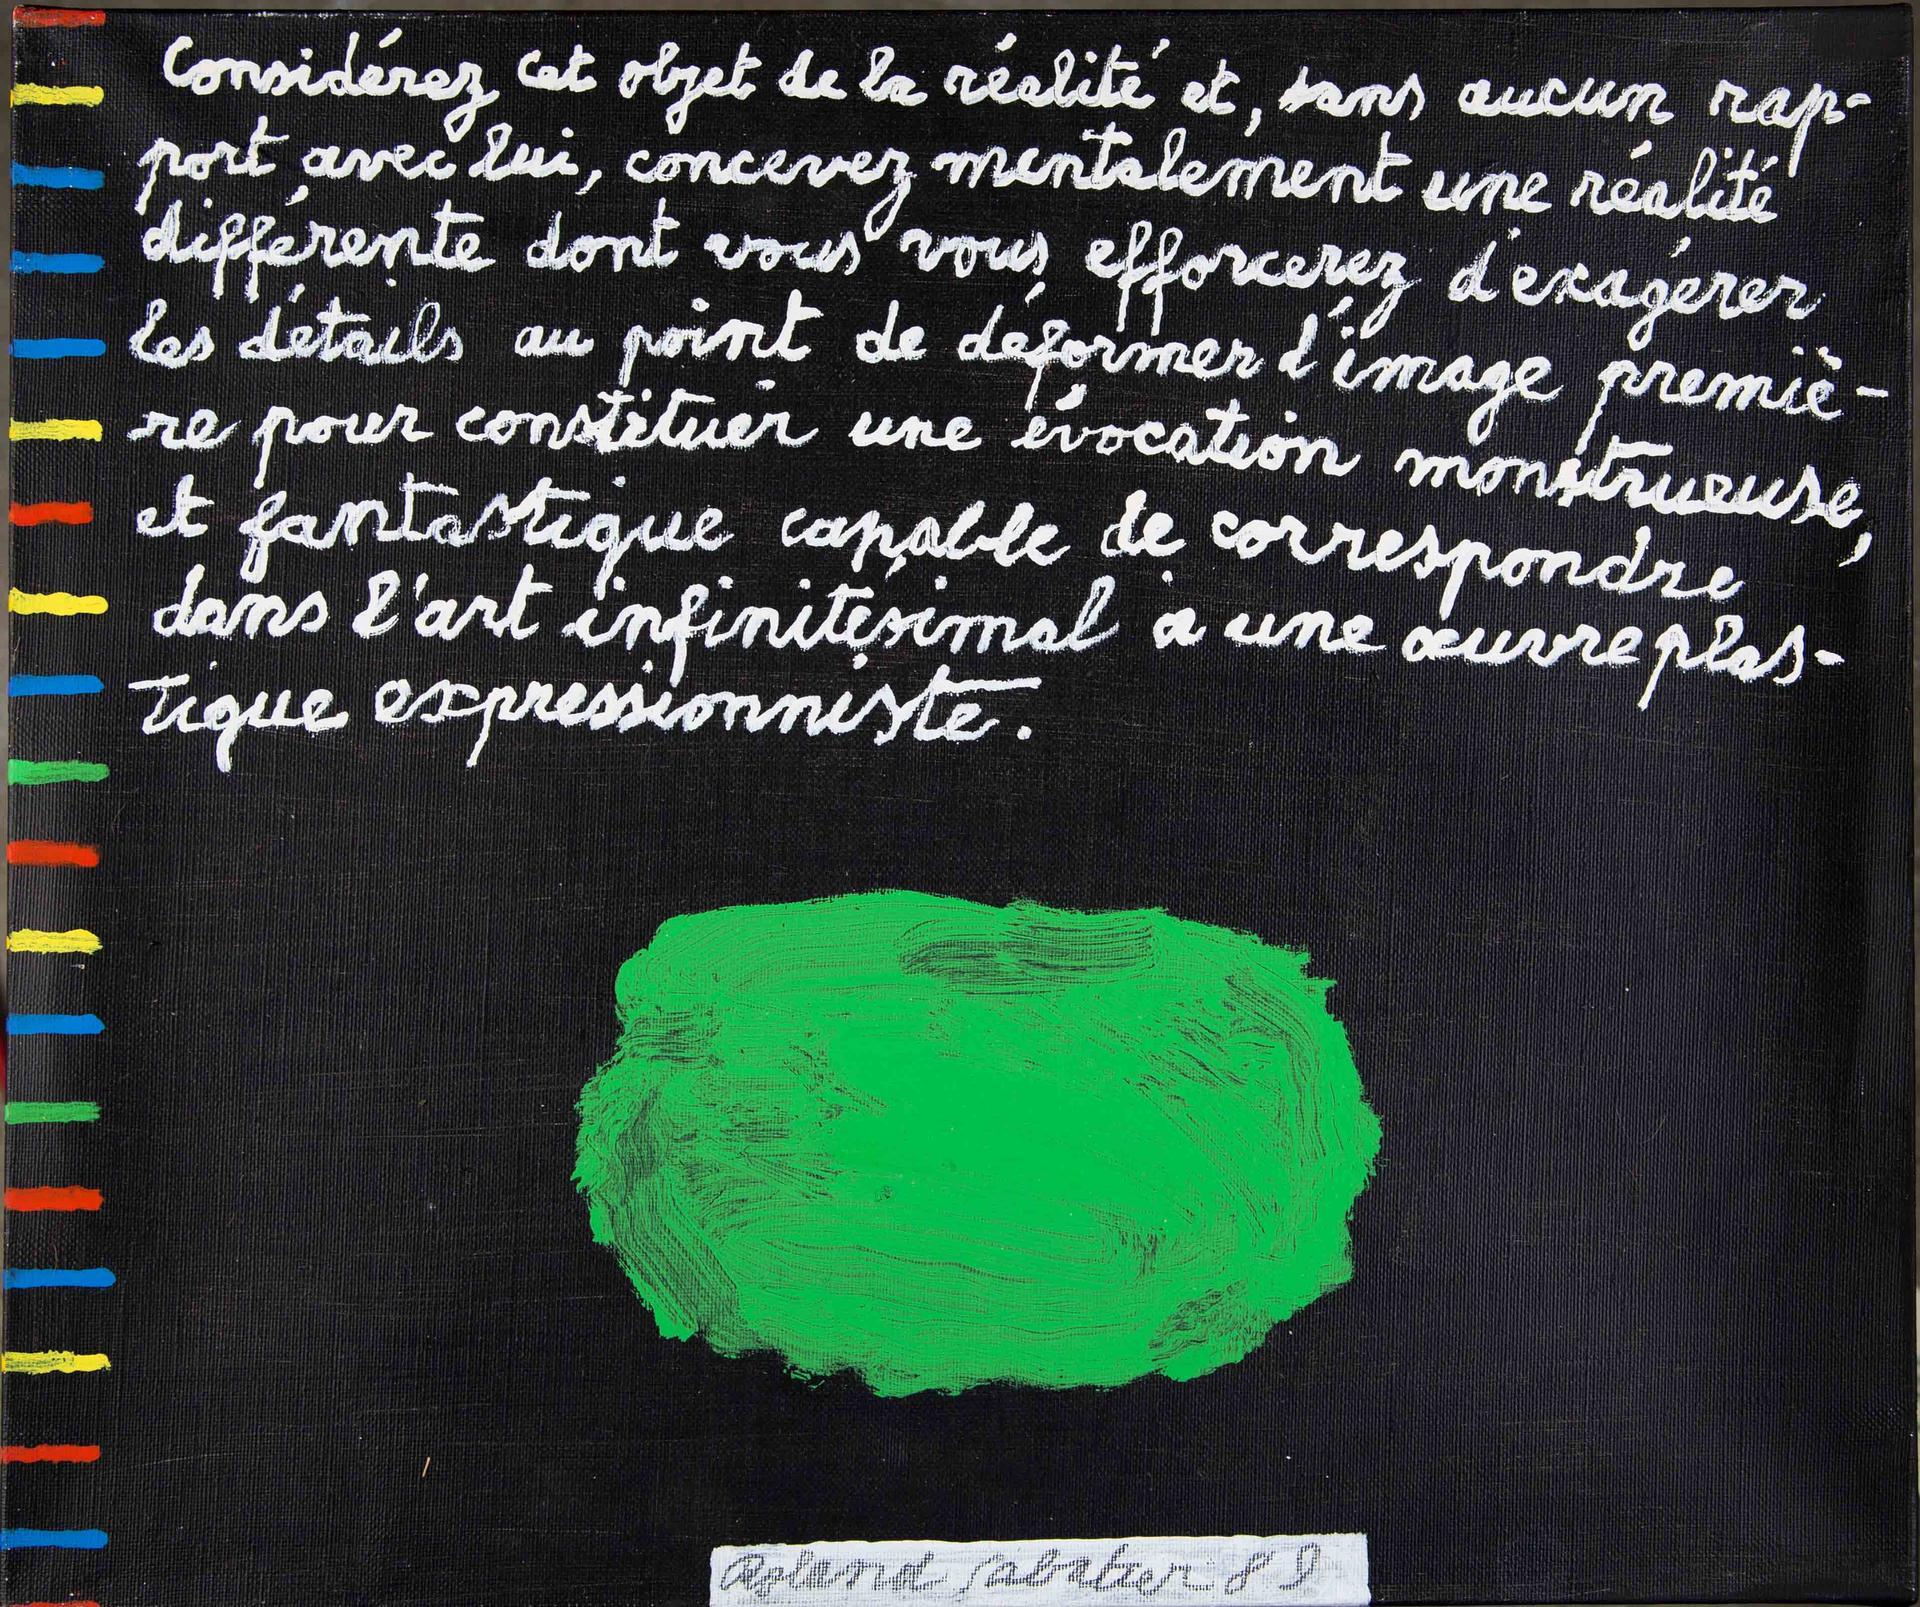 Considérez cet objet de la réalité et, sans aucun rap-
port avec lui, concevez mentalement une réalité
différente dont vous vous efforcerez d'exagérer
les détails au point de déformer l'image premiè-
re pour constituer une évocation monstrueuse,
et fantastique capable de correspondre
dans l'art infinitésimal à une œuvre plas-
tique expressionniste.
Roland Sabatier 89